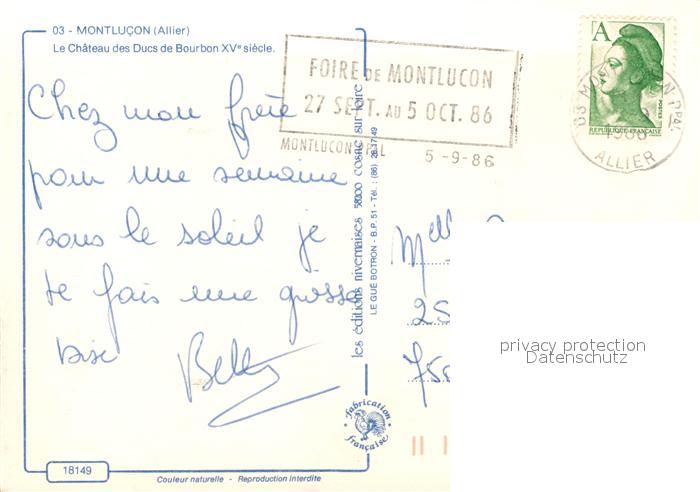 03 - MONTLUÇON (Allier)
Le Château des Ducs de Bourbon XVe siècle.
Chez mon frère
pour une semaine
sous le soleil je
te fais une grosse
bise
18149
Couleur naturelle - Reproduction interdite
les éditions nivernaises 58200 cosne sur loire
LE GUÉ BOTRON - B.P. 51 - Tél. : (86) 28.17.49
fabrication
française
FOIRE DE MONTLUCON
27 SEPT. AU 5 OCT. 86
MONTLUCON PPAL 5-9-86
A
POSTES
REPUBLIQUE FRANÇAISE
03 MONTLUCON PPAL
1986
ALLIER
Melle
25
750
privacy protection
Datenschutz